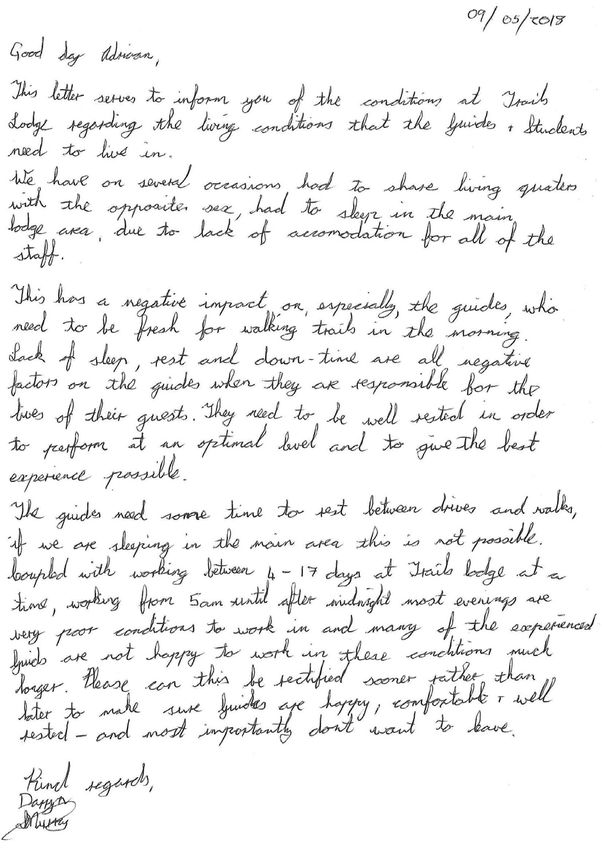 09/05/2018
Good day Adriaan,
This letter serves to inform you of the conditions at Trails
Lodge regarding the living conditions that the Guides + Students
need to live in.
We have on several occasions had to share living quaters
with the opposites sex, had to sleep in the main
lodge area, due to lack of accomodation for all of the
staff.
This has a negative impact on, especially, the guides, who
need to be fresh for walking trails in the morning.
Lack of sleep, rest and down-time are all negative
factors on the guides when they are responsible for the
lives of their guests. They need to be well rested in order
to perform at an optimal level and to give the best
experience possible.
The guides need some time to rest between drives and walks,
if we are sleeping in the main area this is not possible.
Coupled with working between 4-17 days at Trails lodge at a
time, working from 5am until after midnight most evenings are
very poor conditions to work in and many of the experienced
Guids are not happy to work in these conditions much
longer. Please can this be rectified sooner rather than
later to make sure Guides are happy, comfortable + well
rested - and most importantly dont want to leave.
Kind regards,
Darryn
Murray